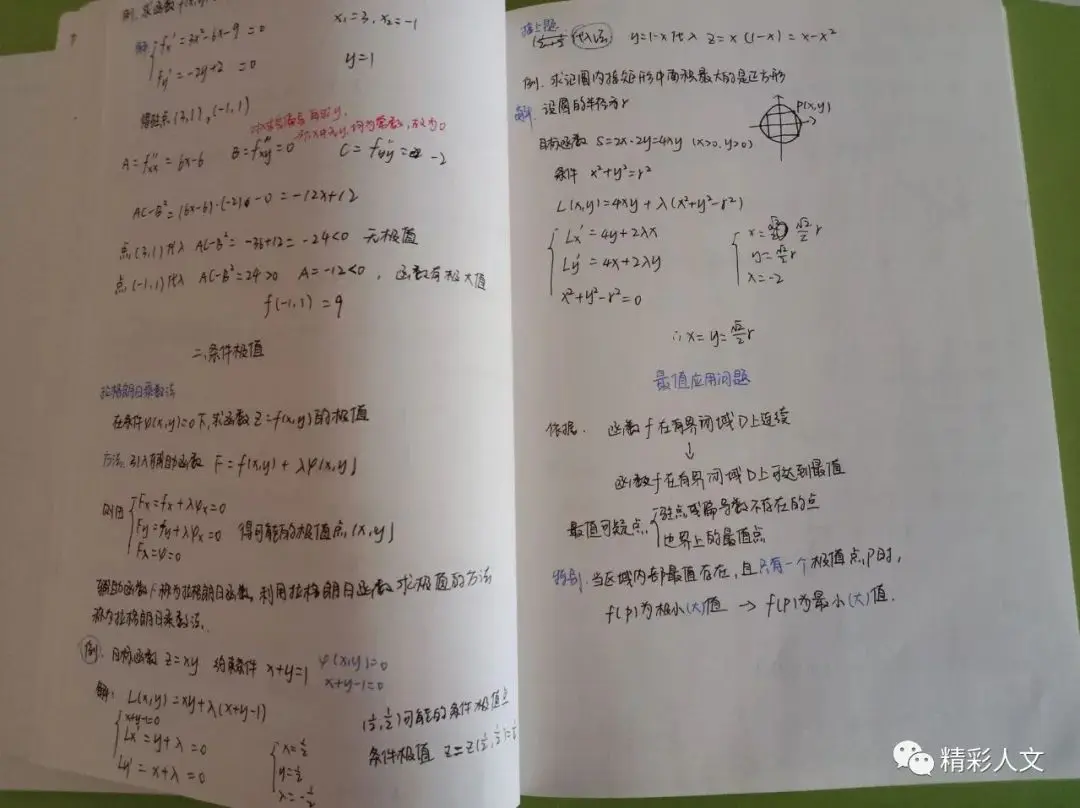 例. 求函数f(x,y)
解 { fx' = 3x²-6x-9 = 0    x₁=3, x₂=-1
fy' = -2y+2 = 0    y=1
得驻点(3,1),(-1,1)
均为常数,故为0
A = fxx'' = 6x-6    B = fxy'' = 0    C = fyy'' = -2
AC-B² = (6x-6)·(-2) - 0 = -12x+12
点(3,1)代入 AC-B² = -36+12 = -24<0 无极值
点(-1,1)代入 AC-B²=24>0 A=-12<0, 函数有极大值
f(-1,1) = 9
二.条件极值
拉格朗日乘数法
在条件φ(x,y)=0下,求函数z=f(x,y)的极值
方法:引入辅助函数 F = f(x,y) + λφ(x,y)
则由 { Fx = fx + λφx = 0
Fy = fy + λφx = 0    得可能的极值点,(x,y)
Fλ = φ = 0
辅助函数F称为拉格朗日函数,利用拉格朗日函数求极值的方法
称为拉格朗日乘数法.
例. 目标函数 z=xy 约束条件 x+y=1 φ(x,y)=0
x+y-1=0
解: L(x,y) = xy+λ(x+y-1)
{ x+y-1=0    (½,½)可能的条件极值点
Lx' = y+λ = 0    { x=½    条件极值 z=z(½,½)=¼
Ly' = x+λ = 0    y=½
λ=-½
接上题
代入法 y=1-x代入 z=x(1-x)=x-x²
例. 求证圆内接矩形中面积最大的是正方形
解. 设圆的半径为r    P(x,y)
目标函数 S=2x·2y=4xy (x>0,y>0)
条件 x²+y²=r²
L(x,y)=4xy+λ(x²+y²-r²)
{ Lx' = 4y+2λx    { x= √2/2 r
Ly' = 4x+2λy    y=√2/2 r
x²+y²-r²=0    λ=-2
∴x=y=√2/2 r
最值应用问题
依据. 函数f在有界闭域D上连续
↓
函数f在有界闭域D上可达到最值
最值可疑点, { 驻点或偏导数不存在的点
边界上的最值点
特别,当区域内部最值存在,且只有一个极值点P时,
f(P)为极小(大)值 → f(P)为最小(大)值.
精彩人文